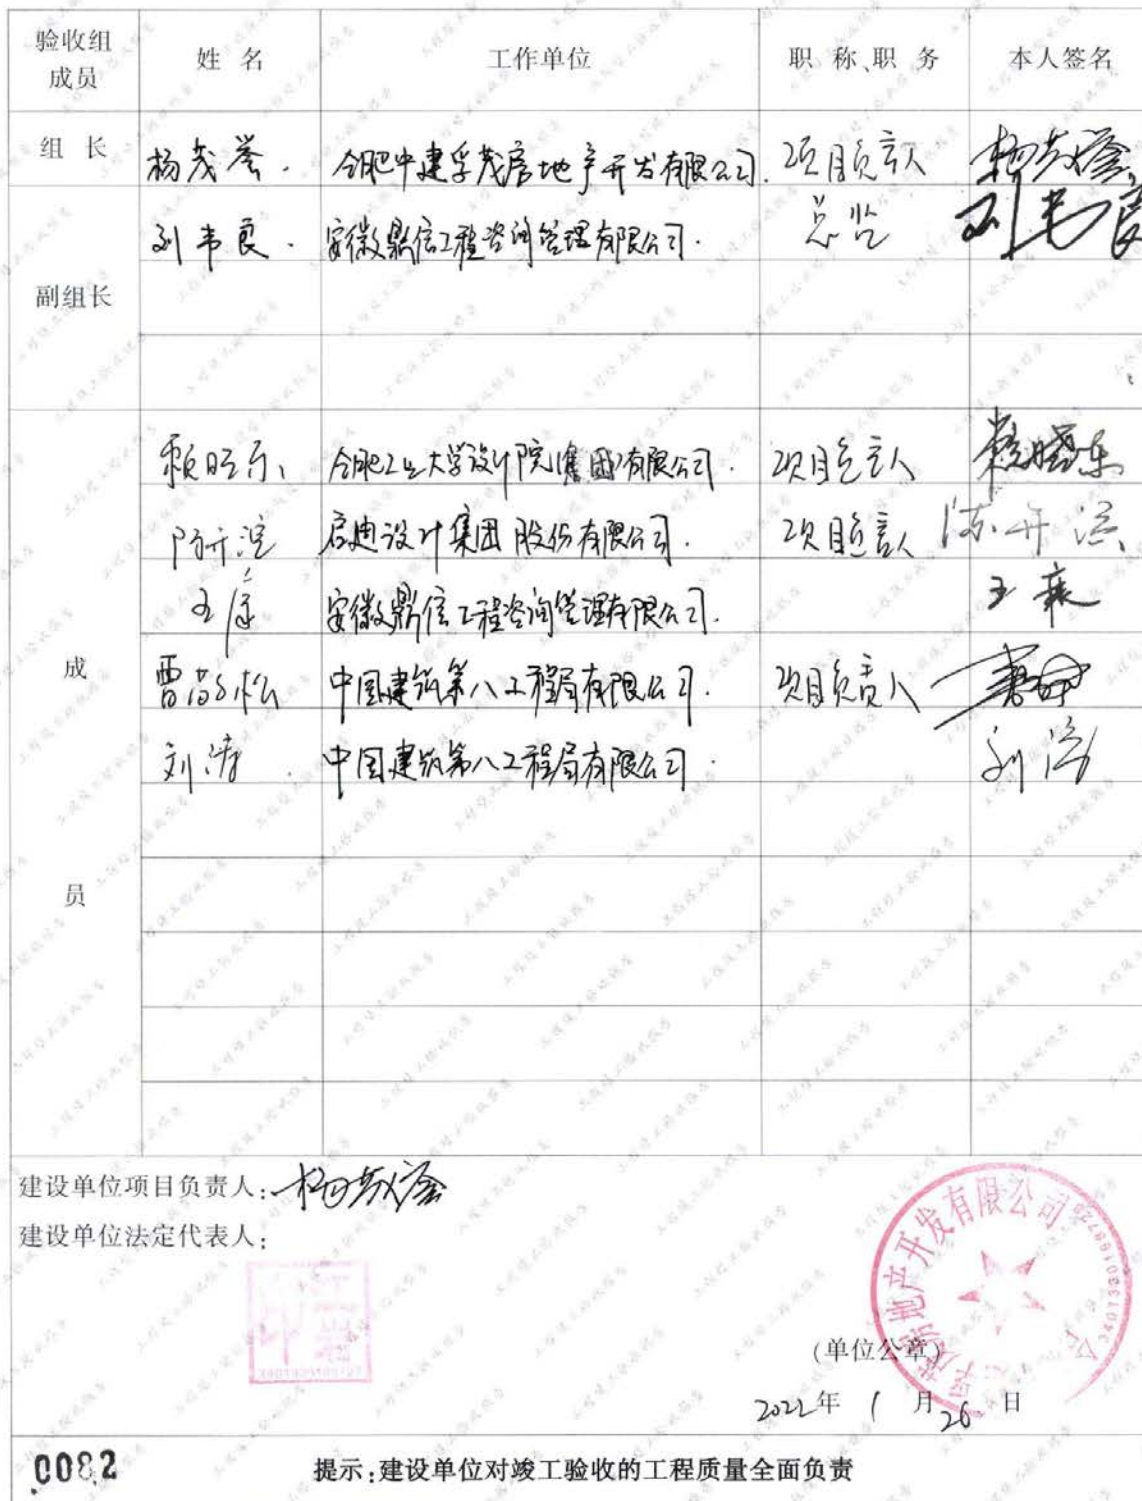 验收组成员 姓 名 工作单位 职 称、职 务 本人签名
组 长 杨茂誉. 合肥中建孚茂房地产开发有限公司. 项目负责人 杨茂誉
刘韦良. 安徽鼎信工程咨询管理有限公司. 总监 刘韦良
副组长
赖晓东、 合肥工业大学设计院(集团)有限公司. 项目负责人 赖晓东
陈开滨 启迪设计集团股份有限公司. 项目负责人 陈开滨
王 安徽鼎信工程咨询管理有限公司. 王
成 曹 松 中国建筑第八工程局有限公司. 项目负责人
刘涛. 中国建筑第八工程局有限公司. 刘涛
员
建设单位项目负责人: 杨茂誉
建设单位法定代表人:
房地产开发有限公司
(单位公章)
2022年 1 月 26 日
0082 提示:建设单位对竣工验收的工程质量全面负责